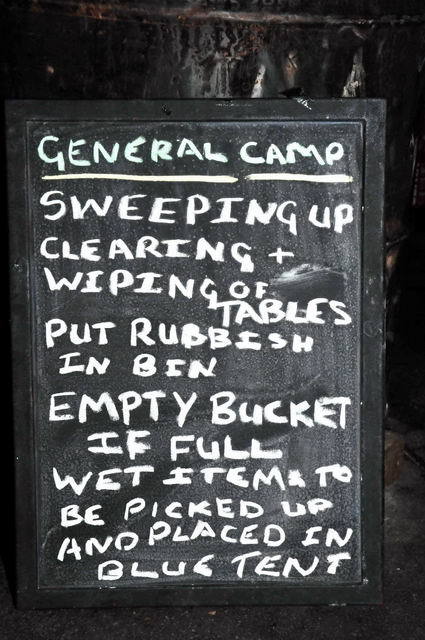 GENERAL CAMP
SWEEPING UP
CLEARING +
WIPING OF
TABLES
PUT RUBBISH
IN BIN
EMPTY BUCKET
IF FULL
WET ITEMS TO
BE PICKED UP
AND PLACED IN
BLUE TENT